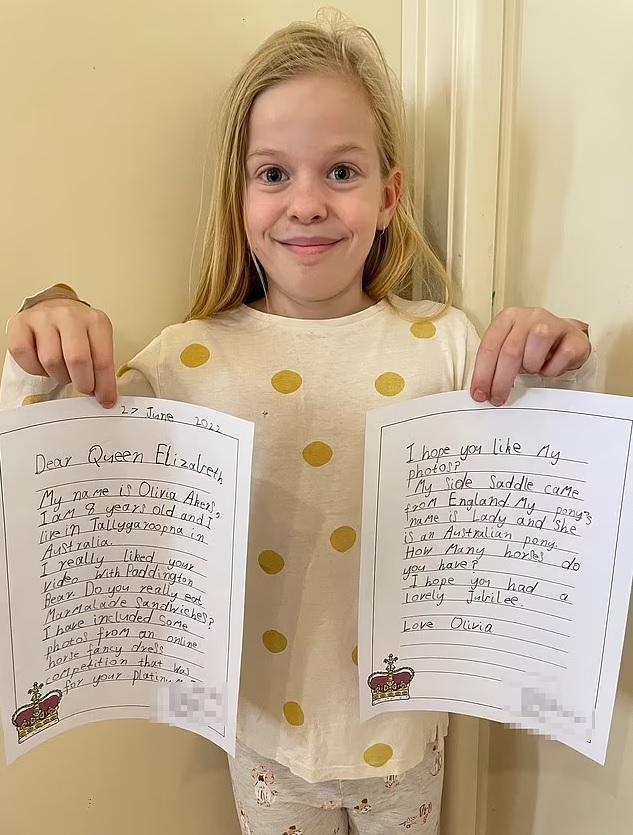 27 June 2022
Dear Queen Elizabeth
My name is Olivia Akers,
I am 8 years old and I
live in Tallygaroopna in
Australia.
I really liked your
video with Paddington
Bear. Do you really eat
Marmalade Sandwiches?
I have included some
photos from an online
horse fancy dress
competition that was
for your
I hope you like My
photos?
My side saddle came
from England My pony's
name is Lady and she
is an Australian pony
How Many horses do
you have?
I hope you had a
lovely Jubilee.
Love Olivia